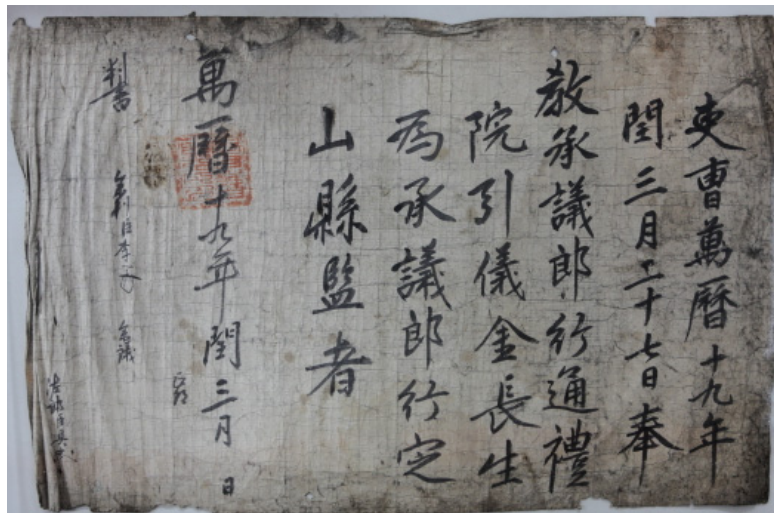 吏曺萬曆十九年
閏三月二十七日奉
教承議郎行通禮
院引儀金長生
為承議郎行定
山縣監者
萬曆十九年閏三月 日
判書 參判臣李 參議